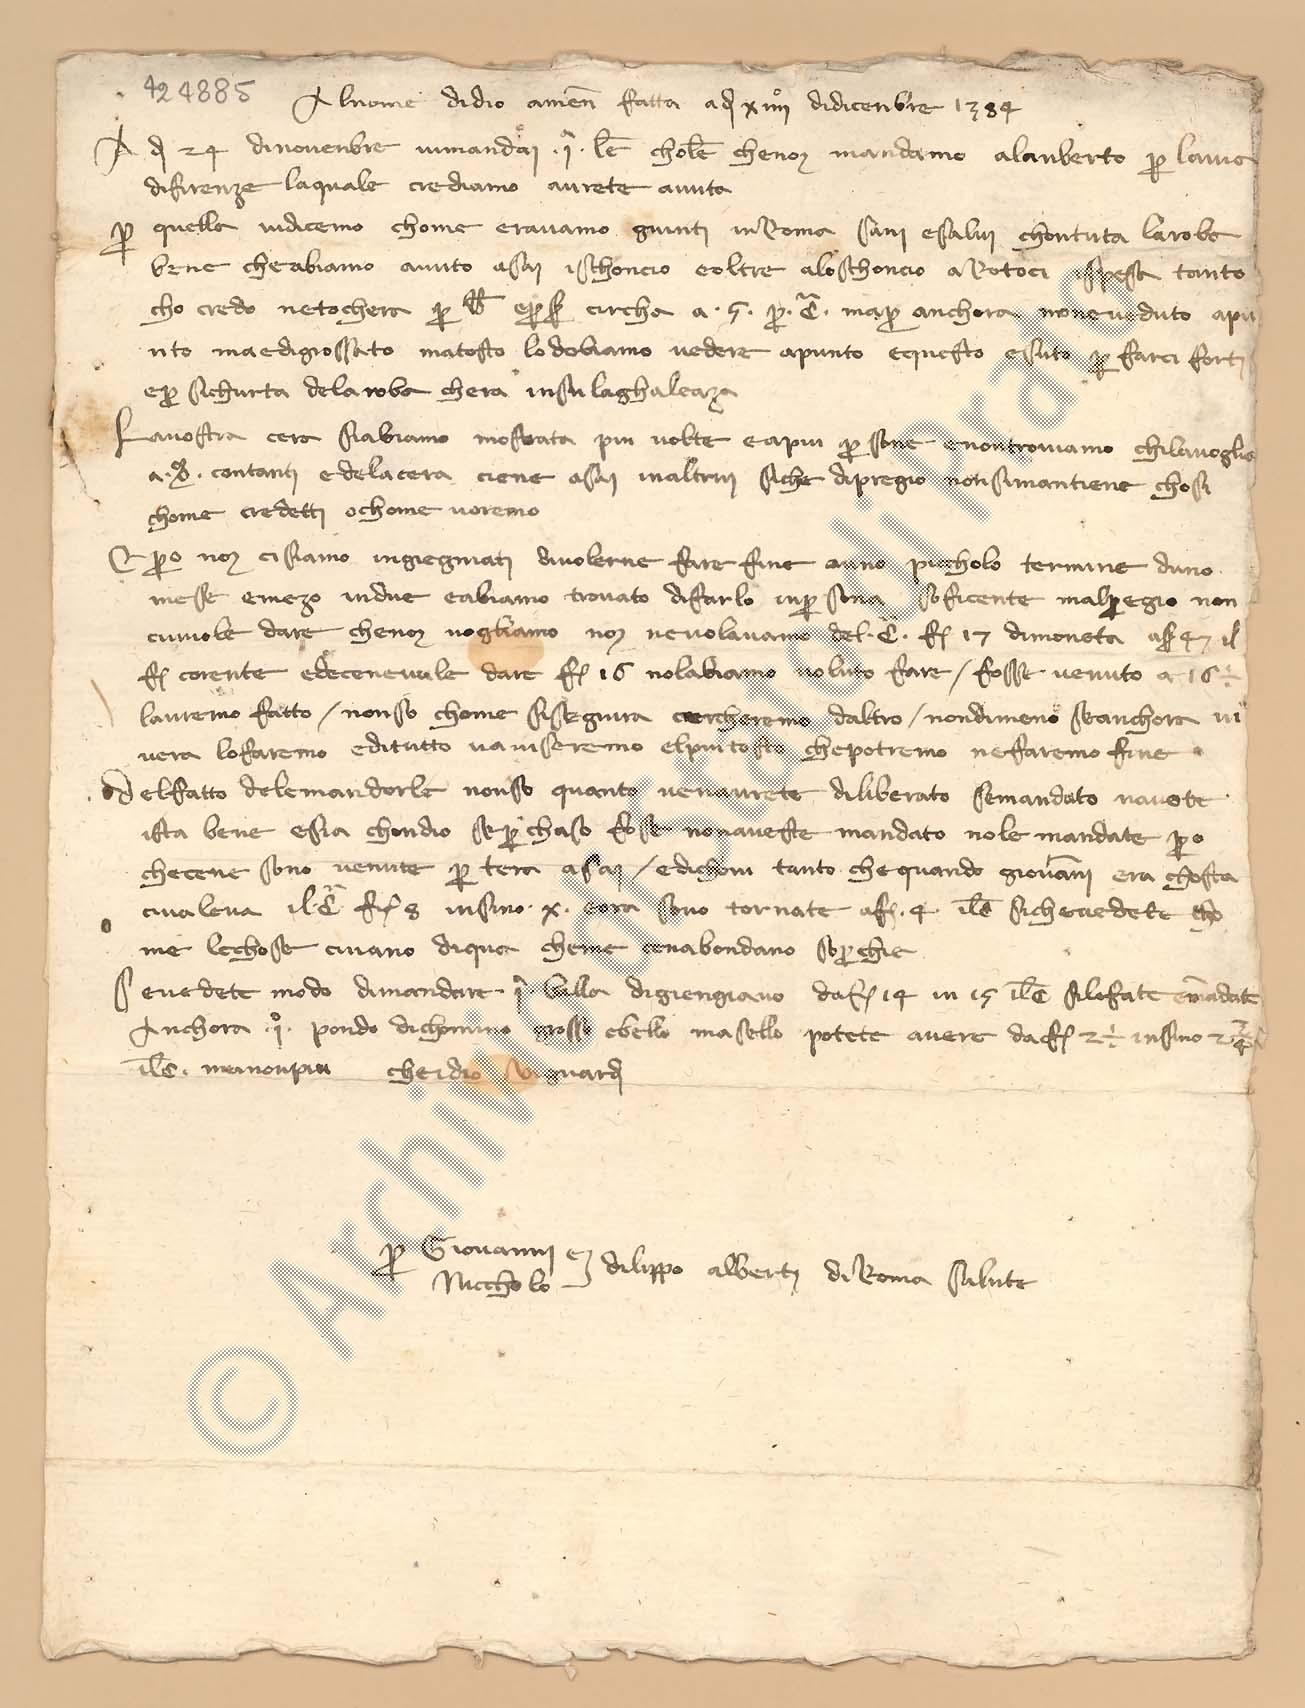 424885
Al nome di dio amen fatta adj xiiij di dicenbre 1384
A dj 24 di novenbre vi mandai .j. le chole che noj mandamo a lanberto per la via
di firenze la quale crediamo aurete avuta
per quella vi dicemo chome eravamo giunti in Roma sani e salvi chon tuta la roba
bene che abiamo avuto asaj ischoncio e oltre a lo schoncio a Rotoci ispesa tanto
cho credo ne tochera per circha a .5. per .C. ma per anchora none veduto apu
nto ma e digrossato ma tosto lo dobiamo vedere apunto e questo e suto per farci fortj
e per sichurta de la roba ch era in su la ghaleaza
La vostra cera si abiamo mostrata piu volte e a piu persone e non troviamo chi la voglia
a contanti e de la cera ci ene asaj in altruj siche di pregio no si mantiene chosi
chome credetti o chome voremo
E pero noj ci siamo ingiegniati di volerne fare fine a uno picholo termine d uno
messe e mezo in due e abiamo trovato di farlo in persona soficente ma l pregio non
ci vuole dare che noj vogliamo noj ne volavamo del .C. fj 17 di moneta a ss 47 il
fj corente e de ce ne vule dare fj 16 no l abiamo voluto fare / fosse venuto a 16 ½
l avremo fatto / non so chome si seguira cercheremo d altro / nondimeno se anchora vi
vera lo faremo e di tutto v aviseremo e l piu tosto che potremo ne faremo fine
Del fatto de le mandorle non so quanto ve n avrete diliberato se mandato n avete
ista bene e sia chon dio se per chaso fose non aveste mandato no le mandate pero
che ce ne sono venute per tera asaj / e dichovi tanto che quando giovanni era chosta
ci valeva il C fj 8 insino x. e ora sono tornate a fj .4. il C siche vedete cho
me le chose ci vano di qua che me ce n abondano soperchie
Se vedete modo di mandare .j. balla di giengiavo da fj 14 in 15 il C si lo fate e mandate
Anchora .j. pondo di chomino grosso e bello ma se llo potete avere da fj 2 ½ insino 2
il C. ma non piu che idio vi guardj
per Giovannj e
Niccholo di lippo albertj di Roma salute
© Archivio di Stato di Prato